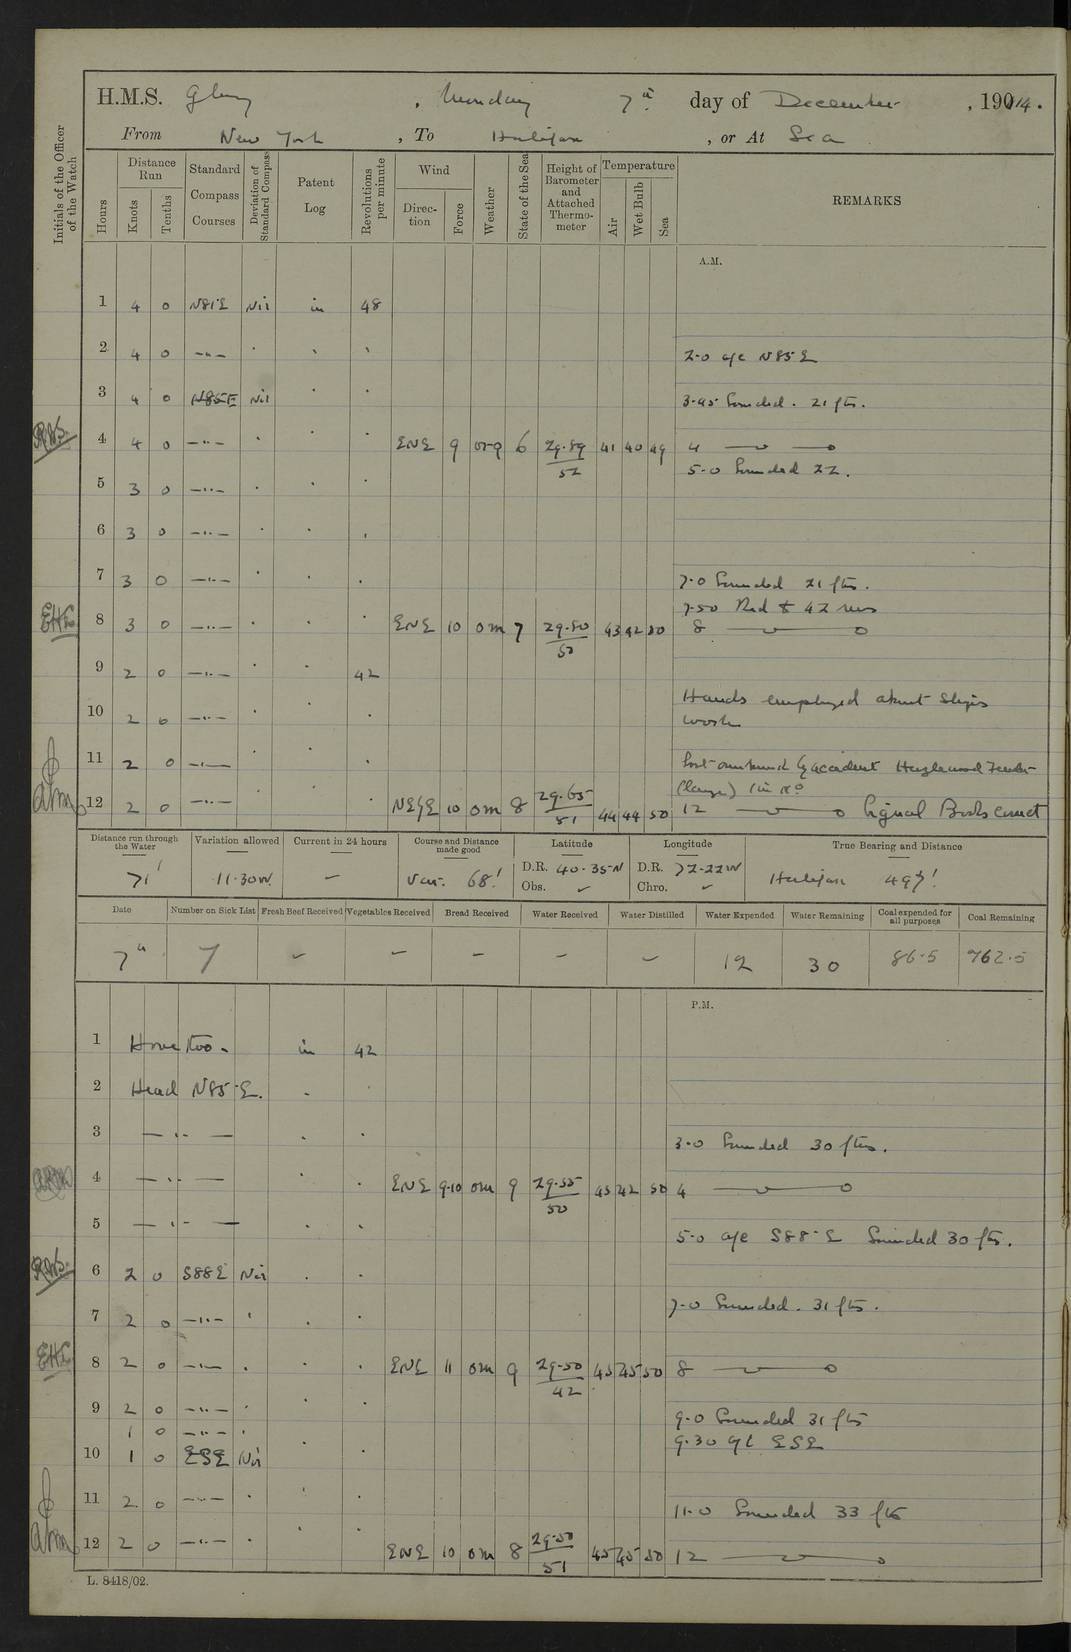 H.M.S. Glory , Monday 7th day of December , 19014.
From New York , To Halifax , or At Sea
Initials of the Officer of the Watch
Hours
Distance Run
Knots Tenths
Standard Compass Courses
Deviation of Standard Compass
Patent Log
Revolutions per minute
Wind
Direction Force
Weather
State of the Sea
Height of Barometer and Attached Thermometer
Temperature
Air Wet Bulb Sea
REMARKS
A.M.
1 4 0 N81E Nil in 48
2 4 0 —"— " " " 2.0 a/c N85E
3 4 0 N85E Nil " " 3.45 Sounded. 21 fts.
4 4 0 —"— " " " ENE 9 orq 6 29.59/52 41 40 49 4 —— o
5.0 Sounded 22.
5 3 0 —"— " " "
6 3 0 —"— " " "
7 3 0 —"— " " " 7.0 Sounded 21 fts.
7.50 Red to 42 revs
8 3 0 —"— " " " ENE 10 om 7 29.80/50 43 42 50 8 —— o
9 2 0 —"— " " 42
Hands employed about Ships
10 2 0 —"— " " " work
11 2 0 —"— " " " Lost overboard by accident Hazlewood Fender
(large) 1 in No
12 2 0 —"— " " " NE/E 10 om 8 29.65/51 44 44 50 12 —— o Signal Books correct
Distance run through the Water 71'
Variation allowed 11.30W.
Current in 24 hours —
Course and Distance made good Var. 68'
Latitude D.R. 40.35N Obs. ~
Longitude D.R. 72.22W Chro. ~
True Bearing and Distance Halifax 497'
Date Number on Sick List Fresh Beef Received Vegetables Received Bread Received Water Received Water Distilled Water Expended Water Remaining Coal expended for all purposes Coal Remaining
7th 7 – – – – – 12 30 86.5 762.5
P.M.
1 Hove too. in 42
2 Head N85E. " "
3 —"— " " 3.0 Sounded 30 fts.
4 —"— " " ENE 9.10 om 9 29.55/50 45 42 50 4 —— o
5 —"— " " 5.0 a/c S88E Sounded 30 fts.
6 2 0 S88E Nil " "
7.0 Sounded. 31 fts.
7 2 0 —"— " " "
8 2 0 —"— " " " ENE 11 om 9 29.50/42 45 45 50 8 —— o
9 2 0 —"— " " " 9.0 Sounded 31 fts
1 0 —"— " 9.30 a/c ESE
10 1 0 ESE Nil " "
11 2 0 —"— " " " 11.0 Sounded 33 fts
12 2 0 —"— " " " ENE 10 om 8 29.50/51 45 45 50 12 —— o
L. 8418/02.